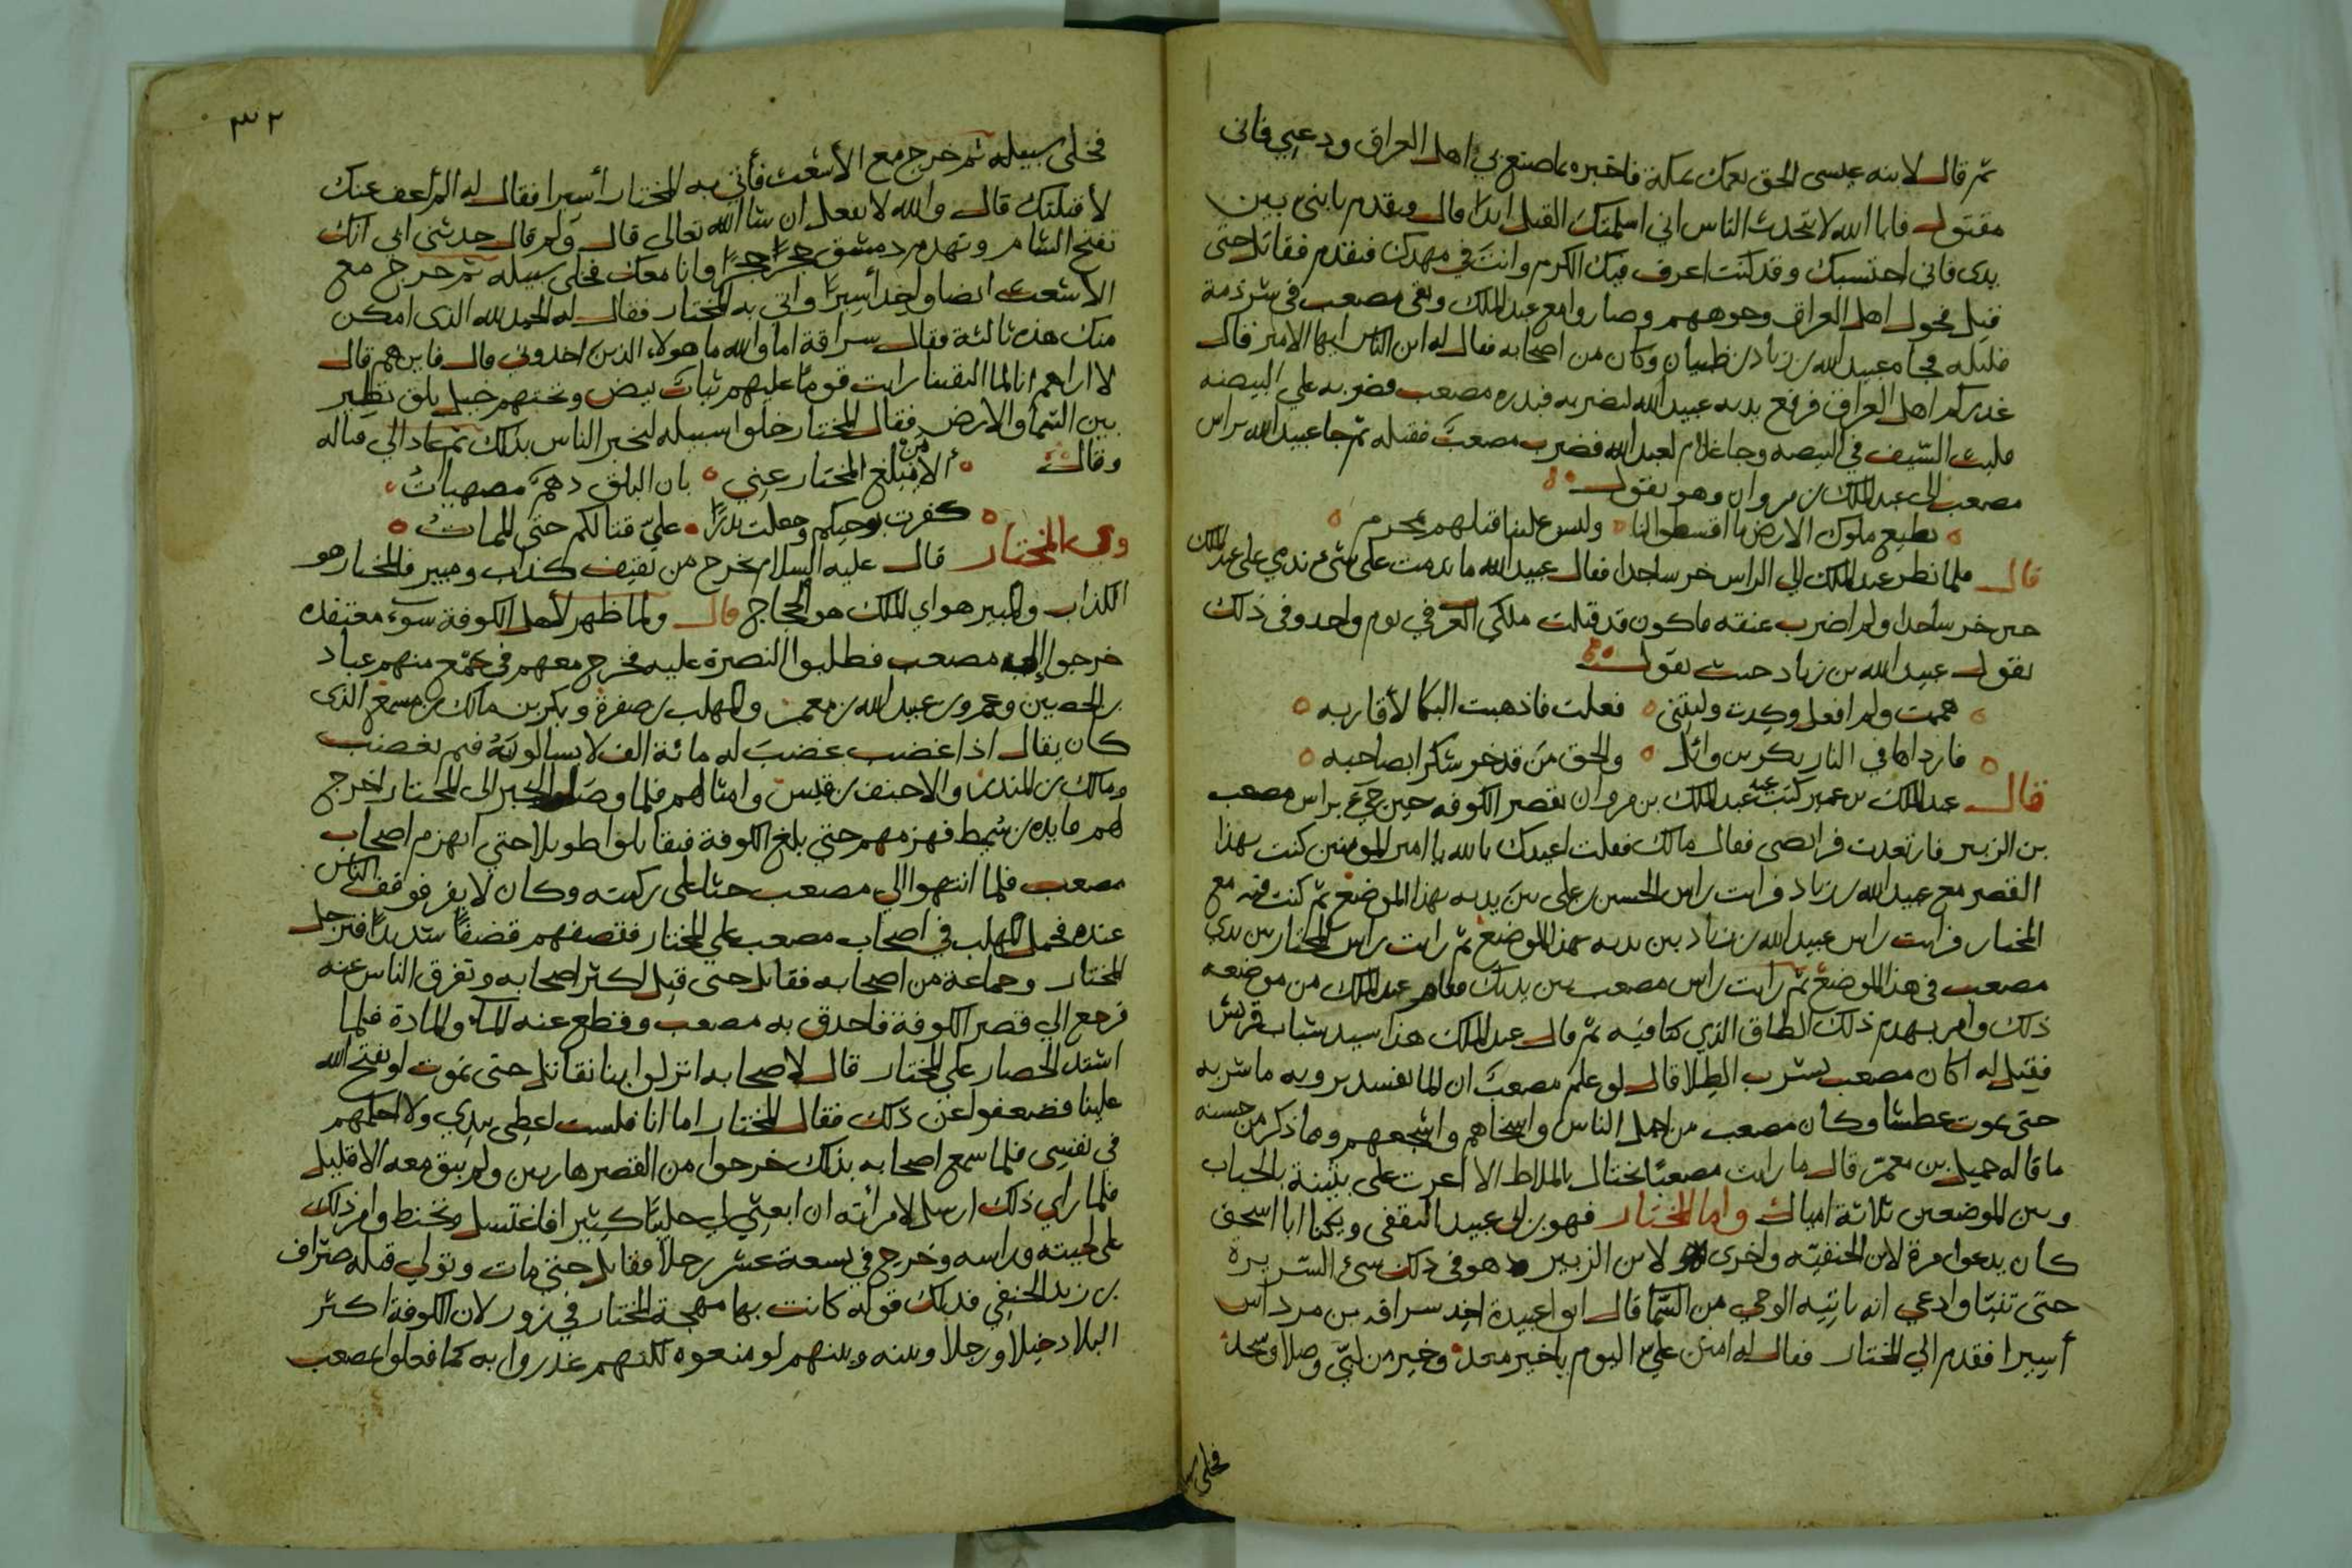 ثم قال لابنه عيسى الحق بعمك بمكة فاخبره بما صنع بي اهل العراق ودعني فاني
مقتول فابا الله لا تتحدث الناس اني اسلمتك القتل ابدا قال وتقدم يا بني بين
يدي فاني احتسبك وقد كنت اعرف فيك الكرم وانت في مهدك فتقدم فقاتل حتى
قتل فحول اهل العراق وجوههم وصاروا مع عبد الملك وبقي مصعب في شرذمة
قليله فجاه عبيد الله بن زياد بن ظبيان وكان من اصحابه فقال له اين الناس ايها الامير قال
غدركم اهل العراق فرفع يده عبيد الله ليضربه فبدره مصعب فضربه على البيضه
فلبث السيف في البيضه وجا غلام لعبيد الله فضرب مصعب فقتله ثم جا عبيد الله براس
مصعب الى عبد الملك بن مروان وهو يقول
نطيع ملوك الارض ما اقسطوا لنا وليس علينا قتلهم بمحرم
قال فلما نظر عبد الملك الي الراس خر ساجدا فقال عبيد الله ما ندمت على شيء ندمي على عبد الملك
حين خر ساجدا ولم اضرب عنقه فاكون قد قتلت ملكي العرب في يوم واحد وفي ذلك
يقول عبيد الله بن زياد حيث يقول
هممت ولم افعل وكدت وليتني فعلت فاذهبت البكا لأقاربه
فاردا لها في النار بكر بن وائل والحق من قد خر شكرا بصاحبه
قال عبد الملك بن عمير كنت عند عبد الملك بن مروان بقصر الكوفه حين جيء براس مصعب
بن الزبير فارتعدت فرائصي فقال مالك فقلت اعيذك بالله يا امير المومنين كنت بهذا
القصر مع عبيد الله بن زياد فرايت راس الحسين بن على بين يديه بهذا الموضع ثم كنت فيه مع
المختار فرايت راس عبيد الله بن زياد بين يديه بهذا الموضع ثم رايت راس المختار بين يدي
مصعب في هذا الموضع ثم رايت راس مصعب بين يديك فقام عبد الملك من موضعه
ذلك وامر بهدم ذلك الطاق الذي كنا فيه ثم قال عبد الملك هذا سيد شباب قريش
فقيل له اكان مصعب يشرب الطلا قال لو علم مصعب ان الما يفسد مرويه ما شربه
حتى يموت عطشا وكان مصعب من اجمل الناس واسخاهم واشجعهم ومما ذكر من حسنه
ما قاله جميل بن معمر قال ما رايت مصعبا يختال بالبلاط الا اغرت على بثينة بالجباب
وبين الموضعين ثلاثة اميال واما المختار فهو بن ابي عبيد الثقفي ويكنا ابا اسحق
كان يدعوا مرة لابن الحنفيه واخرى لابن الزبير وهو في ذلك سيء السريرة
حتى تنبا وادعي انه ياتيه الوحي من السما قال ابو اعبيدة اخذ سراقه بن مرداس
أسيرا فقدم الي المختار فقال له امنن علي اليوم يا خير معد وخير من لبي وصلا وسجد
فخلى
٣٢
فخلى سبيله ثم خرج مع الأشعث فأتي به المختار أسيرا فقال له الم اعف عنك
لاقتلنك قال والله لا تفعل ان شا الله تعالى قال ولم قال حدثني ابي انك
تفتح الشام وتهدم دمشق حجرًا حجرًا وانا معك فخلى سبيله ثم خرج مع
الاشعث ايضا واخذ أسيرًا واتي به المختار فقال له الحمد لله الذي امكن
منك هذه ثالثة فقال سراقة اما والله ما هولاء الذين اخذوني قال فاين هم قال
لا اراهم انا لما التقينا رايت قومًا عليهم ثيابٌ بيض وتحتهم خيل بلق تطير
بين السمأ والارض فقال المختار خلوا سبيله ليخبر الناس بذلك ثم عاد الي قتاله
وقال ألا من مبلغ المختار عني بان البلق دهم مصمتاتُ
كفرت بوحيكم وجعلت نذرًا علي قتالكم حتى المماتُ
وفي المختار قال عليه السلام يخرج من ثقيف كذاب ومبير فالمختار هو
الكذاب والمبير هو اي الملك هو الحجاج قال ولما ظهر لاهل الكوفة سوء معتقده
خرجوا إلى مصعب فطلبوا النصرة عليه فخرج معهم في جمع منهم عباد
بن الحصين وعمرو بن عبيد الله بن معمر والمهلب بن صفرة وبكر بن مالك بن مسمع الذي
كان يقال اذا غضب غضبَ له مائة الف لا يسالونهُ فيم يغضب
ومالك بن المنذر والاحنف بن قيس وامثالهم فلما وصل الخبر الى المختار اخرج
لهم ما يده بن شميط فهزمهم حتي بلغ الكوفة فتقاتلوا طويلا حتي انهزم اصحاب
مصعب فلما انتهوا الي مصعب جثا على ركبته وكان لا يفر فوقف الناس
عنده فحمل المهلب في اصحاب مصعب علي المختار فتصفهم قصفًا شديدًا فترجل
المختار وجماعة من اصحابه فقاتل حتى قتل اكثر اصحابه وتفرق الناس عنه
فرجع الي قصر الكوفة فاحدق به مصعب وقطع عنه الماء والمادة فلما
اشتد الحصار علي المختار قال لاصحابه انزلوا بنا نقاتل حتى نموت او يفتح الله
علينا فضعفوا عن ذلك فقال المختار اما انا فلست اعطي بيدي ولا احكمهم
في نفسي فلما سمع اصحابه بذلك خرجوا من القصر هاربين ولم يبق معه الا قليل
فلما راي ذلك ارسل لامرأته ان ابعثي لي طيبًا كثيرا فاغتسل وتحنط وافرذلك
على لحيته وراسه وخرج في تسعة عشر رجلا فقاتل حتي مات وتولي قتله صراف
بن زيد الحنفي فتلك قوله كانت بها مهجة المختار في زور لان الكوفة اكثر
البلاد خيلا ورجلا وبينه وبينهم لو منعوه لكنهم غدروا به كما فعلوا بمصعب